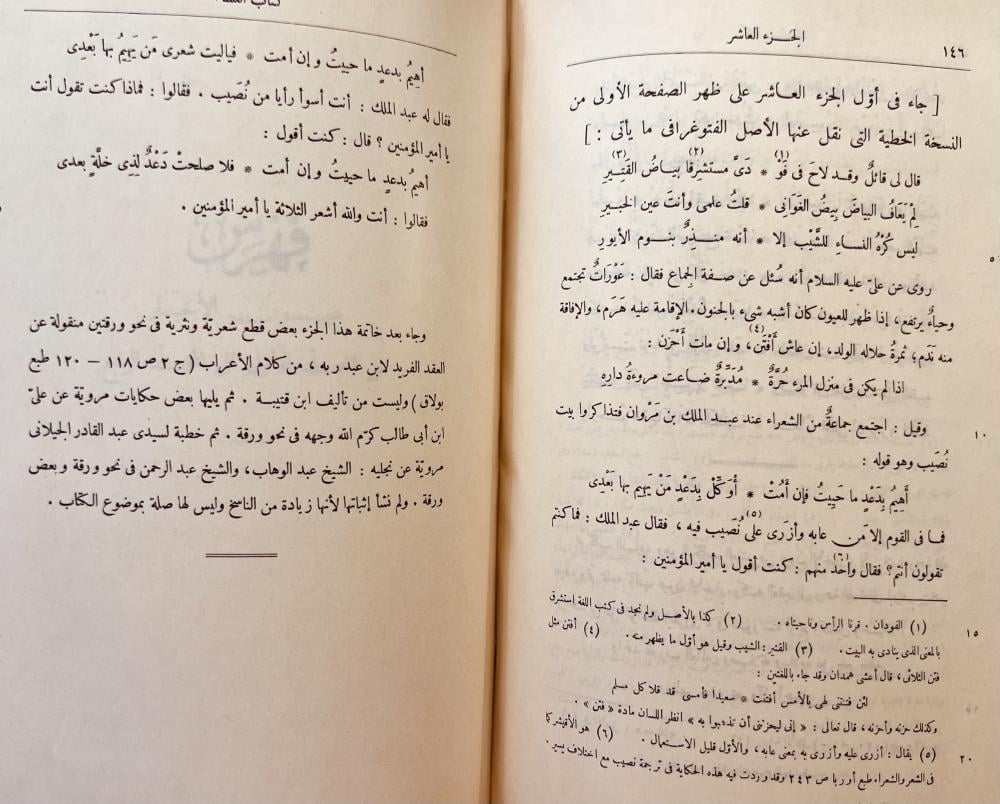 الجزء العاشر
١٤٦
[ جاء فى أوّل الجزء العاشر على ظهر الصفحة الأولى من
النسخة الخطية التى نقل عنها الأصل الفتوغرافى ما يأتى : ]
قال لى قائلٌ وقد لاحَ فى فَوْ * دَىَّ مستشرِفا بياضُ القَتِيرِ
(١) (٢) (٣)
لِمْ يَعَافُ البياضَ بِيضُ الغَوانِى * قلتُ علمى وأنتَ عين الخبيرِ
ليس كُرْهُ النساءِ للشَّيْب إلا * أنه منذِرٌ بنوم الأيور
٥
روى عن علىّ عليه السلام أنه سُئل عن صفة الجماع فقال : عَوْرَاتٌ تجتمع
وحياءٌ يرتفع، إذا ظهر للعيون كان أشبه شىء بالجنون. الإقامة عليه هَرَم، والإفاقة
منه نَدَم؛ ثمرةُ حلاله الولد، إن عاش أَفْتَن(٤)، وإن مات أَحْزَن :
اذا لم يكن فى منزل المرء حُرَّةٌ * مُدَبِّرةٌ ضاعت مروءةُ دارِهِ
وقيل : اجتمع جماعةٌ من الشعراء عند عبد الملك بن مَرْوان فتذاكروا بيت
١٠
نُصَيب وهو قوله :
أَهِيمُ بِدَعْدٍ ما حَيِيتُ فإن أَمُتْ * أُوَكِّلْ بِدَعْدٍ مَنْ يَهِيم بها بَعْدِى
فما فى القوم إلا مَن عابه وأزْرَى على(٥) نُصَيب فيه ، فقال عبد الملك : فما كنتم
تقولون أنتم؟ فقال واحدٌ(٦) منهم : كنت أقول يا أمير المؤمنين :
(١) الفودان . قرنا الرأس وناحيتاه . (٢) كذا بالأصل ولم نجد فى كتب اللغة استشرق
١٥
بالمعنى الذى ينادى به البيت . (٣) القتير : الشيب وقيل هو أوّل ما يظهر منه . (٤) أفتن مثل
فتن الثلاثى ، قال أعشى همدان وقد جاء باللغتين :
لئن فتنتنى لهى بالأمس أفتنت * سعيدا فأمسى قد قلا كل مسلم
وكذلك حزنه وأحزنه ، قال تعالى : « إنى ليحزننى أن تذهبوا به » انظر اللسان مادة « فتن » .
(٥) يقال : أزرى عليه وأزرى به بمعنى عابه ، والأوّل قليل الاستعمال . (٦) هو الأقيشر كما
٢٠
فى الشعر والشعراء طبع أوربا ص ٢٤٣ وقد وردت فيه هذه الحكاية فى ترجمة نصيب مع اختلاف يسير .
أهيمُ بدعدٍ ما حييتُ وإن أمت * فياليت شعرى مَن يَهيمُ بها بَعْدِى
فقال له عبد الملك : أنت أسوأ رأيا من نُصَيب . فقالوا : فماذا كنت تقول أنت
يا أمير المؤمنين ؟ قال : كنت أقول :
أهيمُ بدعدٍ ما حييتُ وإن أمت * فلا صلحتْ دَعْدٌ لِذِى خلَّةٍ بعدى
فقالوا : أنت والله أشعر الثلاثة يا أمير المؤمنين .
وجاء بعد خاتمة هذا الجزء بعض قطع شعريّة ونثرية فى نحو ورقتين منقولة عن
العقد الفريد لابن عبد ربه ، من كلام الأعراب ( ج ٢ ص ١١٨ — ١٢٠ طبع
بولاق ) وليست من تأليف ابن قتيبة . ثم يليها بعض حكايات مروية عن علىّ
ابن أبى طالب كرّم الله وجهه فى نحو ورقة . ثم خطبة لسيدى عبد القادر الجيلانى
مرويّة عن نجليه : الشيخ عبد الوهاب، والشيخ عبد الرحمن فى نحو ورقة وبعض
ورقة . ولم نشأ إثباتها لأنها زيادة من الناسخ وليس لها صلة بموضوع الكتاب .